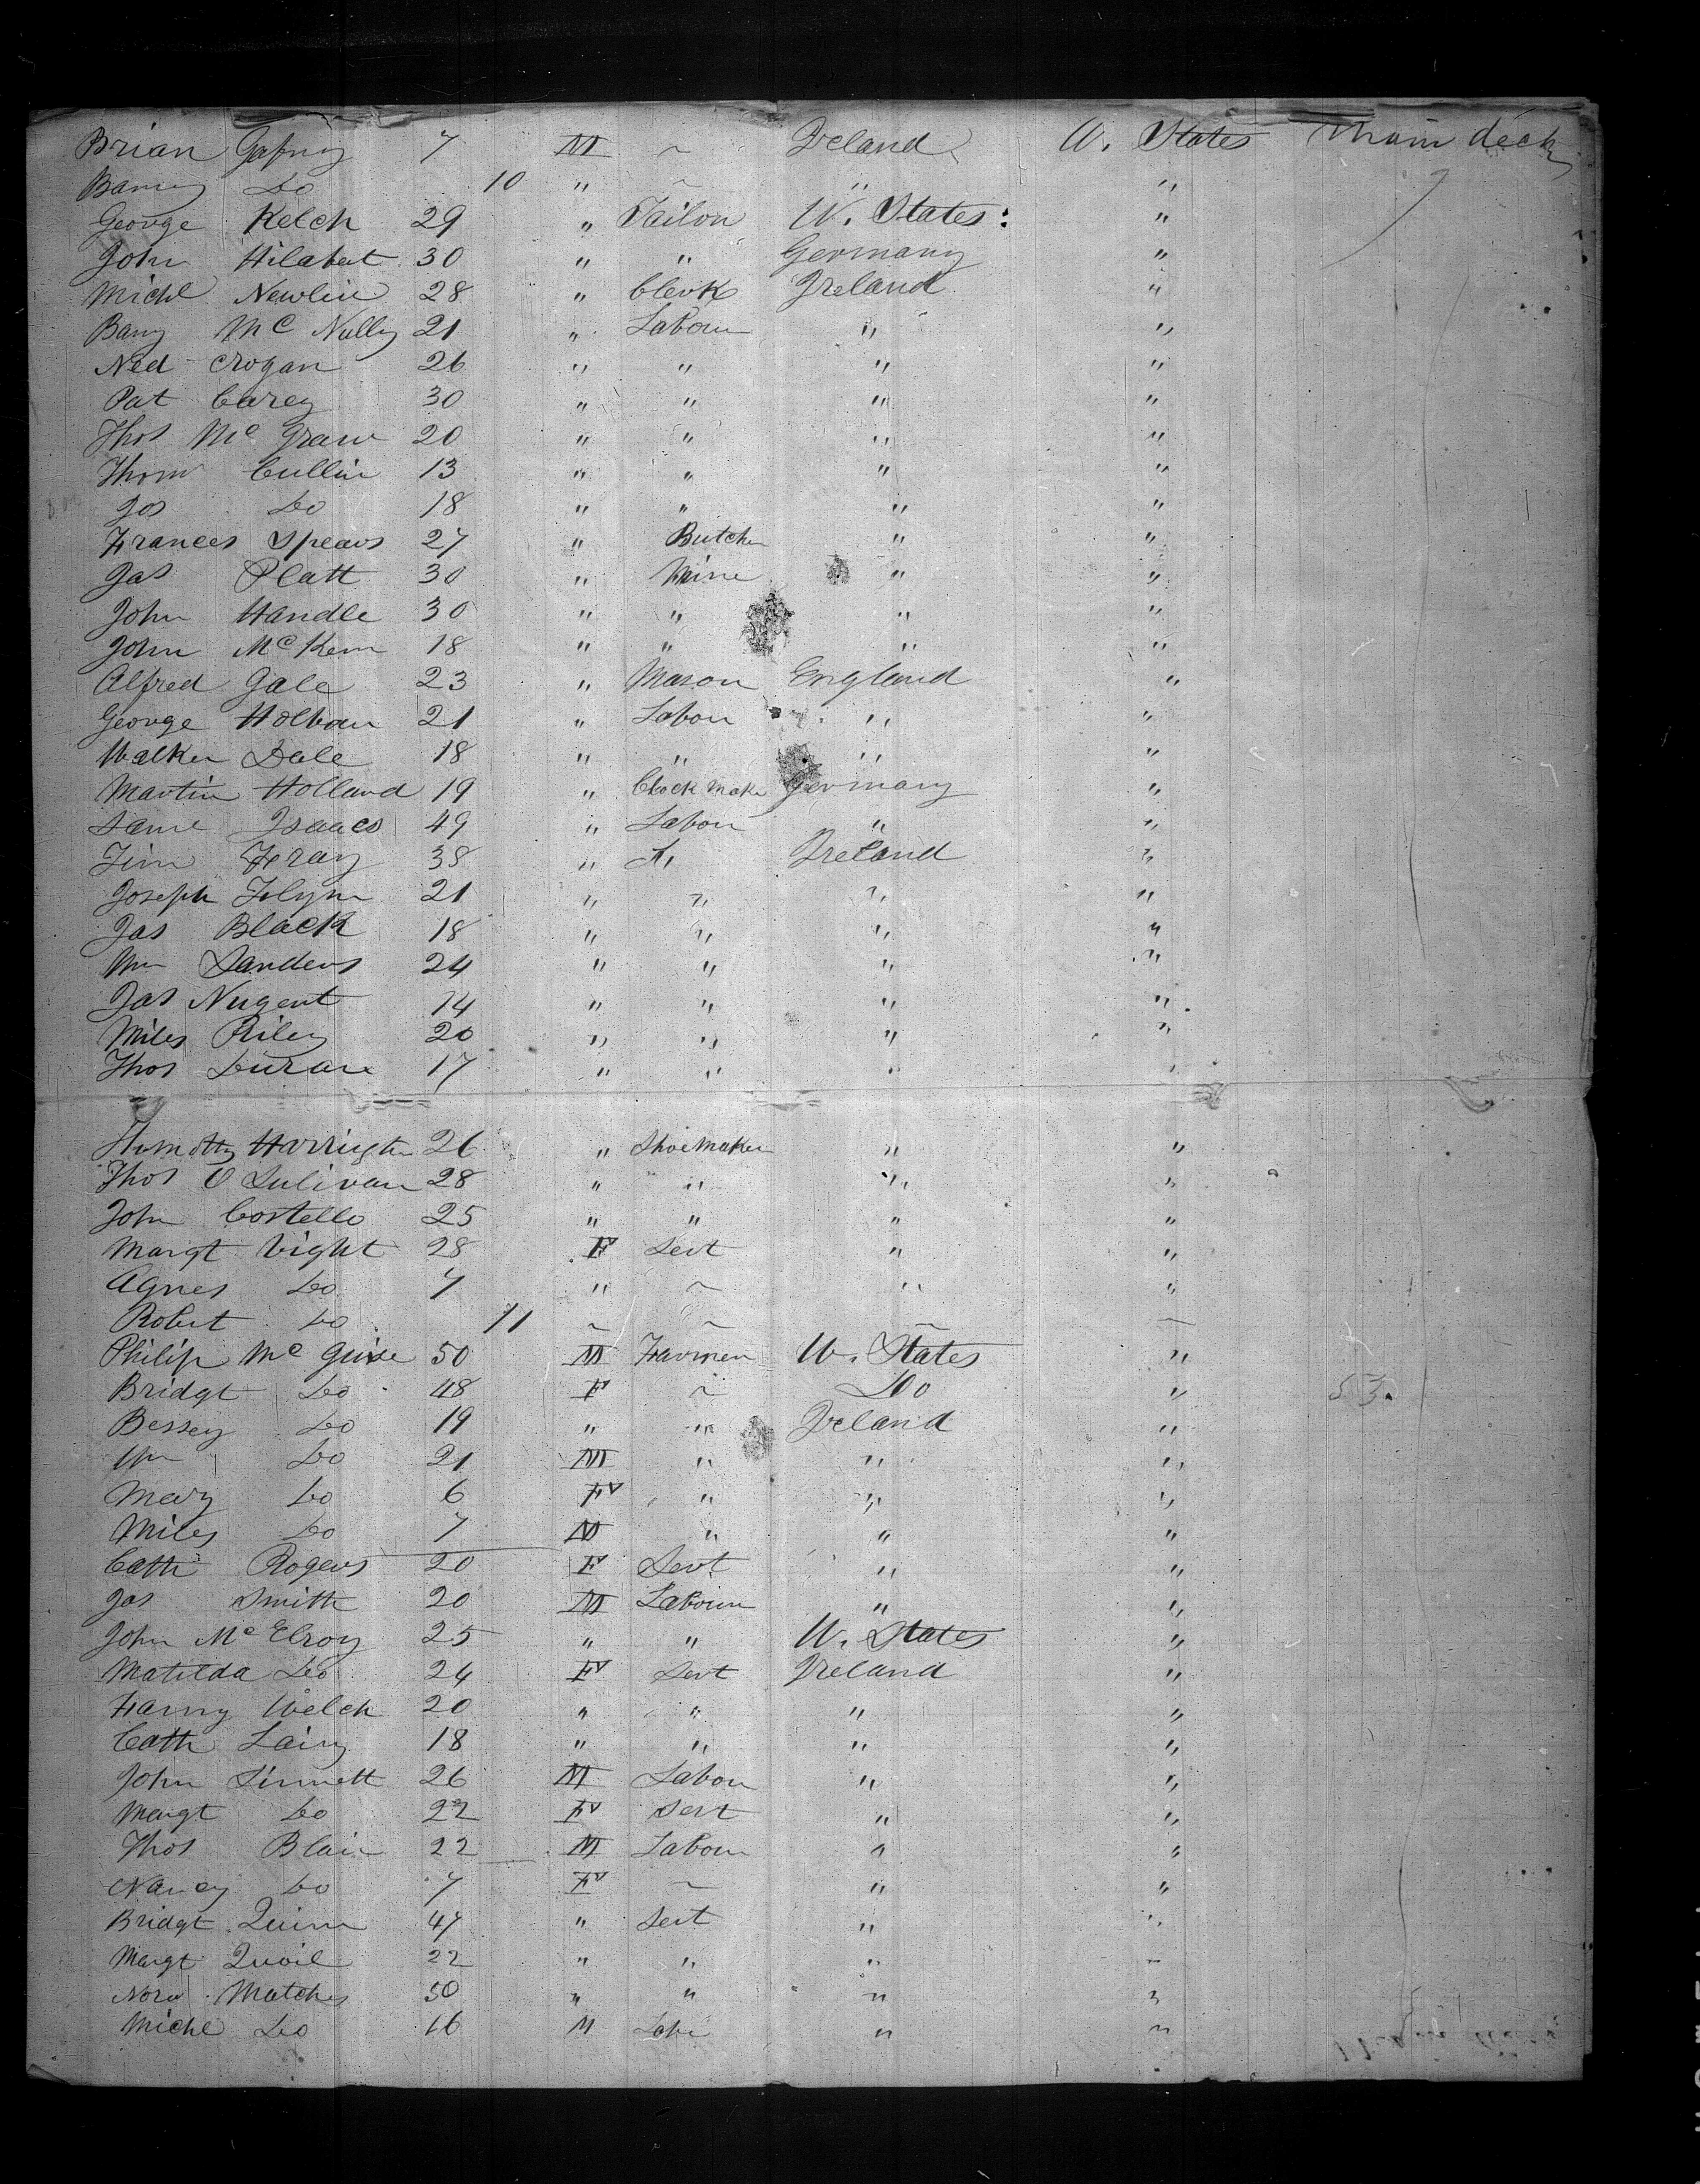 Brian Gafney 7 M ~ Ireland U. States Main deck
Barney Do 10 " ~ " "
George Kelch 29 " Tailor U. States: "
John Hilabert 30 " " Germany "
Michl Newlin 28 " Clerk Ireland "
Barny Mc Nally 21 " Labour " "
Ned Crogan 26 " " " "
Pat Carey 30 " " " "
Thos Mc Graw 20 " " " "
Thom Cullin 13 " " " "
Jos Do 18 " " " "
Frances Spears 27 " Butcher " "
Jas Platt 30 " Mine " "
John Handle 30 " " " "
John McKern 18 " " " "
Alfred Gale 23 " Mason England "
George Holban 21 " Labour " "
Walker Dale 18 " " " "
Martin Holland 19 " Clock Maker Germany "
Same Isaacs 49 " Labour " "
Tim Fray 38 " Ireland "
Joseph 21 " " " "
Jas Black 18 " " " "
Wm Sanders 24 " " " "
Jas Nugent 14 " " " "
Miles Riley 20 " " " "
Thos Durane 17 " " " "
Thimothy Harrington 26 " Shoemaker " "
Thos O Sulivan 28 " " " "
John Costello 25 " " " "
Margt Vight 28 F Sert " "
Agnes Do 7 " ~ " "
Robert Do 11 ~ ~ ~ ~
Philip Mc Guire 50 M Farmer U. States "
Bridgt Do 48 F ~ Do " 53.
Bessey Do 19 " " Ireland "
Wm Do 21 M " " "
Mary Do 6 F " " "
Miles Do 7 M " " "
Cath Rogers 20 F Servt " "
Jas Smith 20 M Labour " "
John McElroy 25 " " U. States "
Matilda Do 24 F Sert Ireland "
Fanny Welch 20 " " " "
Cath Lairy 18 " " " "
John Sinnett 26 M Labour " "
Margt Do 22 F Sert " "
Thos Blair 22 M Labour " "
Nancy Do 7 F ~ " "
Bridgt Quinn 47 " Sert " "
Margt Quoil 22 " " " "
Nora Matches 50 " " " "
Michl Do 16 M Labr " "